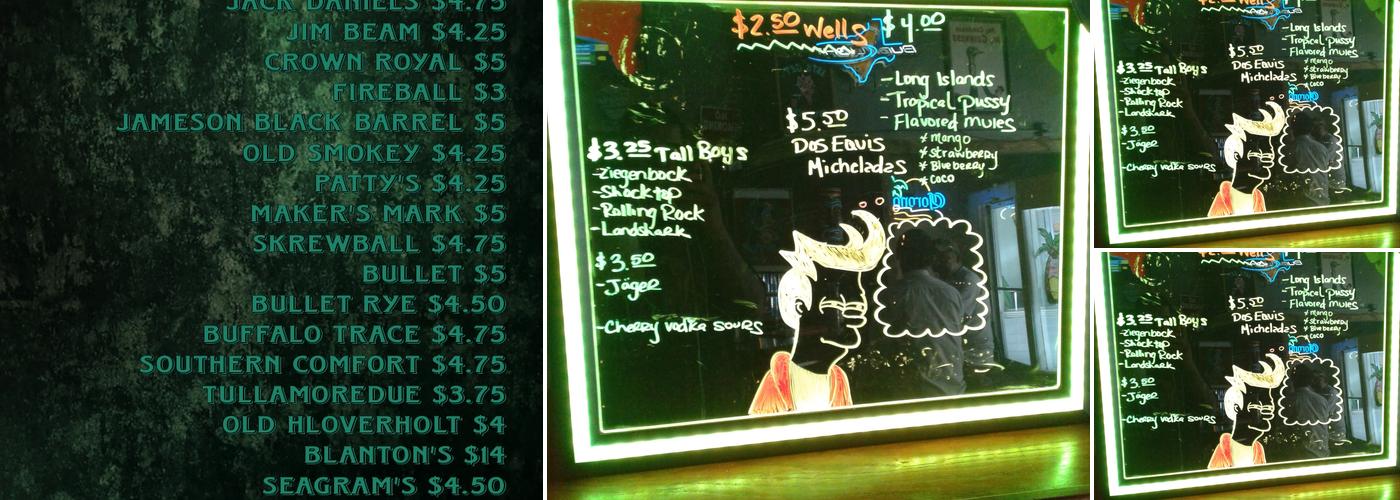 JACK DANIELS $4.75
JIM BEAM $4.25
CROWN ROYAL $5
FIREBALL $3
JAMESON BLACK BARREL $5
OLD SMOKEY $4.25
PATTY'S $4.25
MAKER'S MARK $5
SKREWBALL $4.75
BULLET $5
BULLET RYE $4.50
BUFFALO TRACE $4.75
SOUTHERN COMFORT $4.75
TULLAMOREDUE $3.75
OLD HLOVERHOLT $4
BLANTON'S $14
SEAGRAM'S $4.50
$2.50 Wells
$4.00
- Long Islands
- Tropical Pussy
- Flavored mules
* mango
* Strawberry
* Blueberry
* coco
$5.50
Dos Equis
Micheladas
$3.25 Tall Boys
- Ziegenbock
- Shock top
- Rolling Rock
- Landshark
$3.50
- Jäger
- Cherry vodka sours
Corona
- Long Islands
- Tropical Pussy
- Flavored mules
* mango
* Strawberry
* Blueberry
* coco
$5.50
Dos Equis
Micheladas
$3.25 Tall Boys
- Ziegenbock
- Shock top
- Rolling Rock
- Landshark
$3.50
- Jäger
- Cherry vodka sours
- Long Islands
- Tropical Pussy
- Flavored mules
* mango
* Strawberry
* Blueberry
* coco
$5.50
Dos Equis
Micheladas
$3.25 Tall Boys
- Ziegenbock
- Shock top
- Rolling Rock
- Landshark
$3.50
- Jäger
- Cherry vodka sours